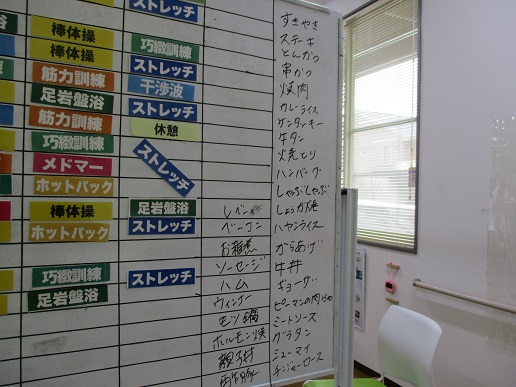 ストレッチ
棒体操
棒体操 巧緻訓練
筋力訓練 ストレッチ
足岩盤浴 干渉波
筋力訓練 ストレッチ
巧緻訓練 休憩
メドマー ストレッチ
ホットパック
棒体操 足岩盤浴
ホットパック ストレッチ
巧緻訓練 ストレッチ
足岩盤浴
レバー
ベーコン
お雑煮
ソーセージ
ハム
ウィンナー
モツ鍋
ホルモン焼
親子丼
すきやき
ステーキ
とんかつ
串かつ
焼肉
カレーライス
ケンタッキー
牛タン
焼とり
ハンバーグ
しゃぶしゃぶ
しょうが焼
ハヤシライス
からあげ
牛丼
ギョーザ
ピーマンの肉づめ
ミートソース
グラタン
シューマイ
チンジャーロース